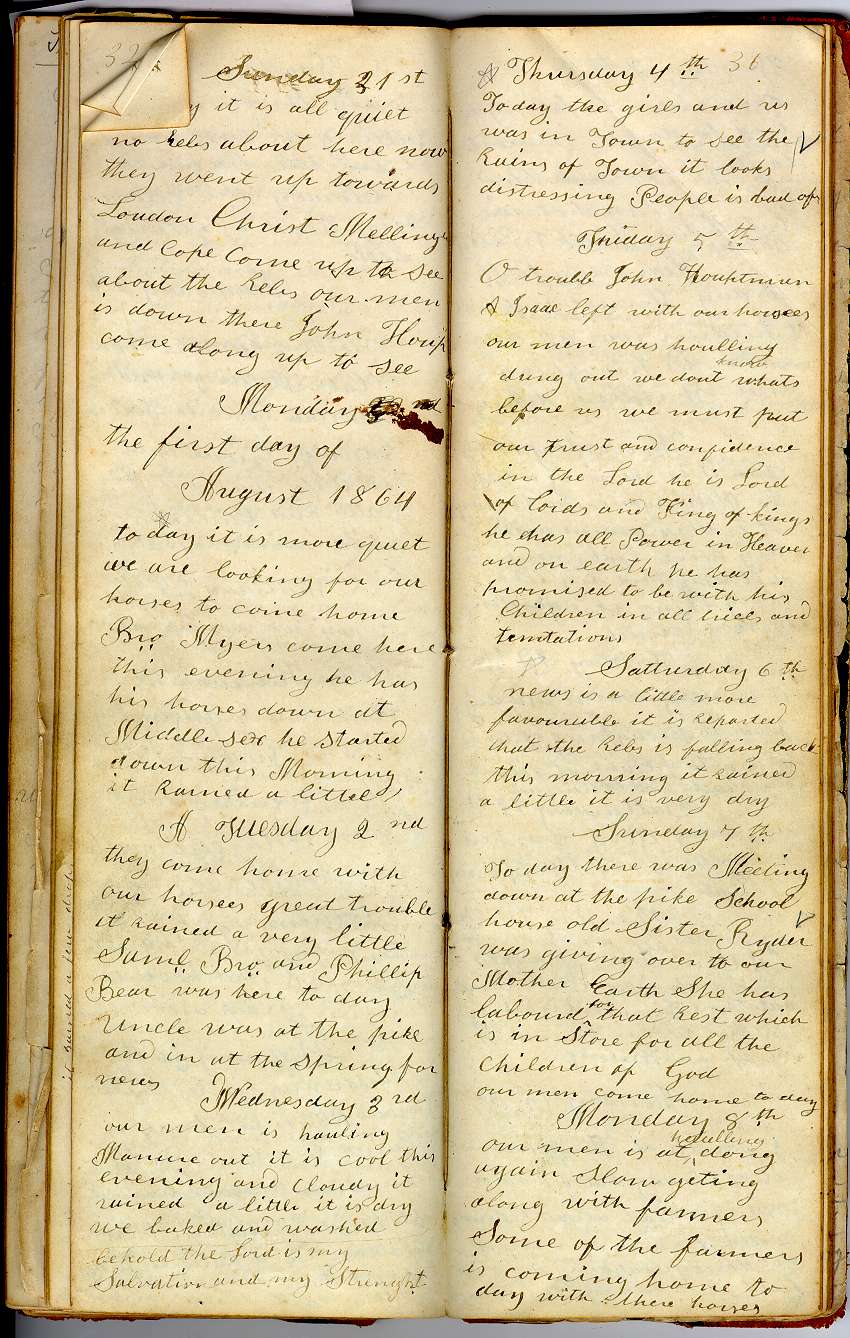 32
Sunday 31st
it is all quiet
no Rebs about here now
they went up towards
Loudon Christ Mellinge
and Cope Come up to see
about the Rebs our men
is down there John Houp
come along up to see
Monday nd
the first day of
August 1864
to day it is more quiet
we are looking for our
horses to come home
Bro Myers come here
this evening he has
his horses down at
Middlesex he started
down this Morning
it Rained a little
A Tuesday 2 nd
they come home with
our horsees great trouble
it Rained a very little
Saml Bro and Phillip
Bear was here to day
Uncle was at the pike
and in at the Spring for
news
Wednesday 3 rd
our men is hauling
Manure out it is cool this
evening and cloudy it
rained a little it is dry
we baked and washed
behold the Lord is my
Salvation and my Strenght
it rained a few drops
36
Thursday 4 th
To day the girls and us
was in Town to see the
Ruins of Town it looks
distressing People is bad of
Friday 5 th
O trouble John Houptman
& Isaac left with our horsees
our men was haulling
dung out we dont know whats
before us we must put
our trust and confidence
in the Lord he is Lord
of lords and King of kings
he has all Power in Heaven
and on earth he has
promised to be with his
Children in all trieles and
temtations
Satturday 6 th
news is a little more
favourable it is Reported
that the Rebs is falling back
this morning it Rained
a little it is very dry
Sunday 7 th
To day there was Meeting
down at the pike School
house old Sister Ryder
was giving over to our
Mother Earth She has
labourd for that Rest which
is in Store for all the
Children of God
our men come home to day
Monday 8 th
our men is at haulling dong
again Slow geting
along with farmers
Some of the farmers
is coming home to
day with there horses